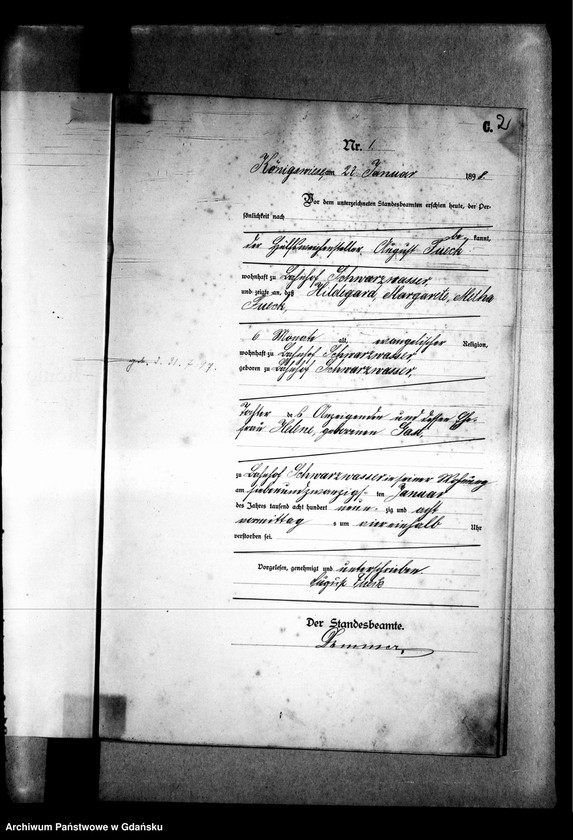 C. 2
Nr. 1
Königswiese am 27 Januar 1898.
Vor dem unterzeichneten Standesbeamten erschien heute, der Per-
sönlichkeit nach
be kannt,
der Hülfsweichensteller August Tueck
wohnhaft zu Bahnhof Schwarzwasser,
und zeigte an, daß Hildegard, Margarete, Metha
Tueck,
6 Monate alt, evangelischer Religion,
wohnhaft zu Bahnhof Schwarzwasser,
geboren zu Bahnhof Schwarzwasser,
geb. d. 31. 7. 97.
Tochter des Anzeigenden und dessen Ehe-
frau Helene, geborenen
zu Bahnhof Schwarzwasser in seiner Wohnung
am siebenundzwanzigsten Januar
des Jahres tausend acht hundert neun zig und acht
vormittag s um viereinhalb Uhr
verstorben sei.
Vorgelesen, genehmigt und unterschrieben
August Tueck
Der Standesbeamte.
Archiwum Państwowe w Gdańsku